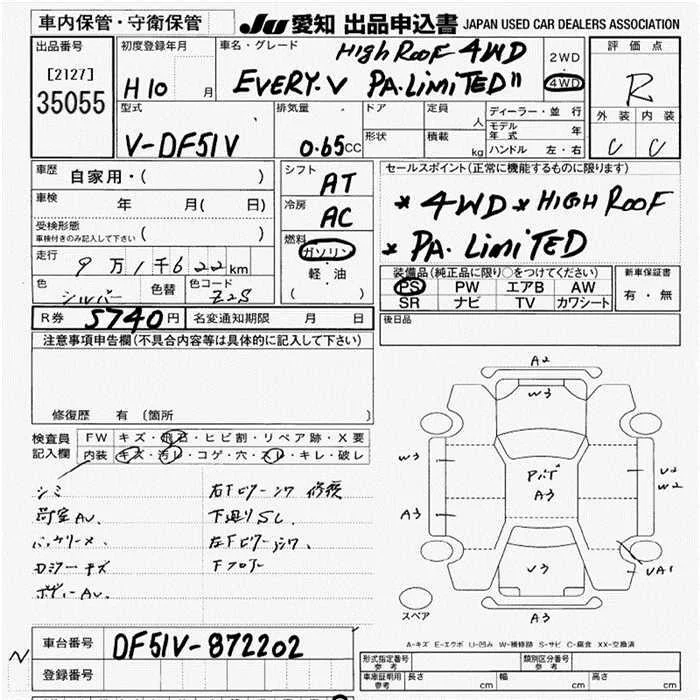 車内保管・守衛保管
JU 愛知 出品申込書 JAPAN USED CAR DEALERS ASSOCIATION
出品番号
[2127]
35055
初度登録年月
H10 月
車名・グレード
HIGH ROOF 4WD
EVERY.V PA.LIMITED"
2WD
・
4WD
評価点
R
外装 内装
C C
型式
V-DF51V
排気量
0.65CC
ドア
定員
人
形状
積載
kg
ディーラー・並行
モデル年式 年
ハンドル 左・右
車歴
自家用・( )
車検 年 月( 日)
受検形態
車検付きのみ記入して下さい ( )
走行 9万1千622km
色 シルバー 色替 色コード Z2S
シフト
AT
冷房
AC
燃料
ガソリン
・
軽油
( )
セールスポイント(正常に機能するものに限ります)
* 4WD * HIGH ROOF
* PA. LIMITED
装備品(純正品に限り○をつけてください)
PS PW エアB AW
SR ナビ TV カワシート
新車保証書
有・無
R券 5740円 名変通知期限 月 日
後日品
注意事項申告欄(不具合内容等は具体的に記入して下さい)
修復歴 有 〔箇所 〕
検査員記入欄
FW キズ・飛石・ヒビ割・リペア跡・X要
内装 キズ・汚レ・コゲ・穴・スレ・キレ・破レ
シミ
荷室AV.
右下ピラーシワ 修複
下廻りSC.
ボディーAV.
A2
W3
W3
A3
A3
U2
W2
V3
UA1
A3
スペア
A-キズ E-エクボ U-凹み W-補修跡 S-サビ C-腐食 XX-交換済
車台番号 DF51V-872202
登録番号
N
形式指定番号 参考
類別区分番号 参考
車庫証明用 参考 長さ cm 幅 cm 高さ cm